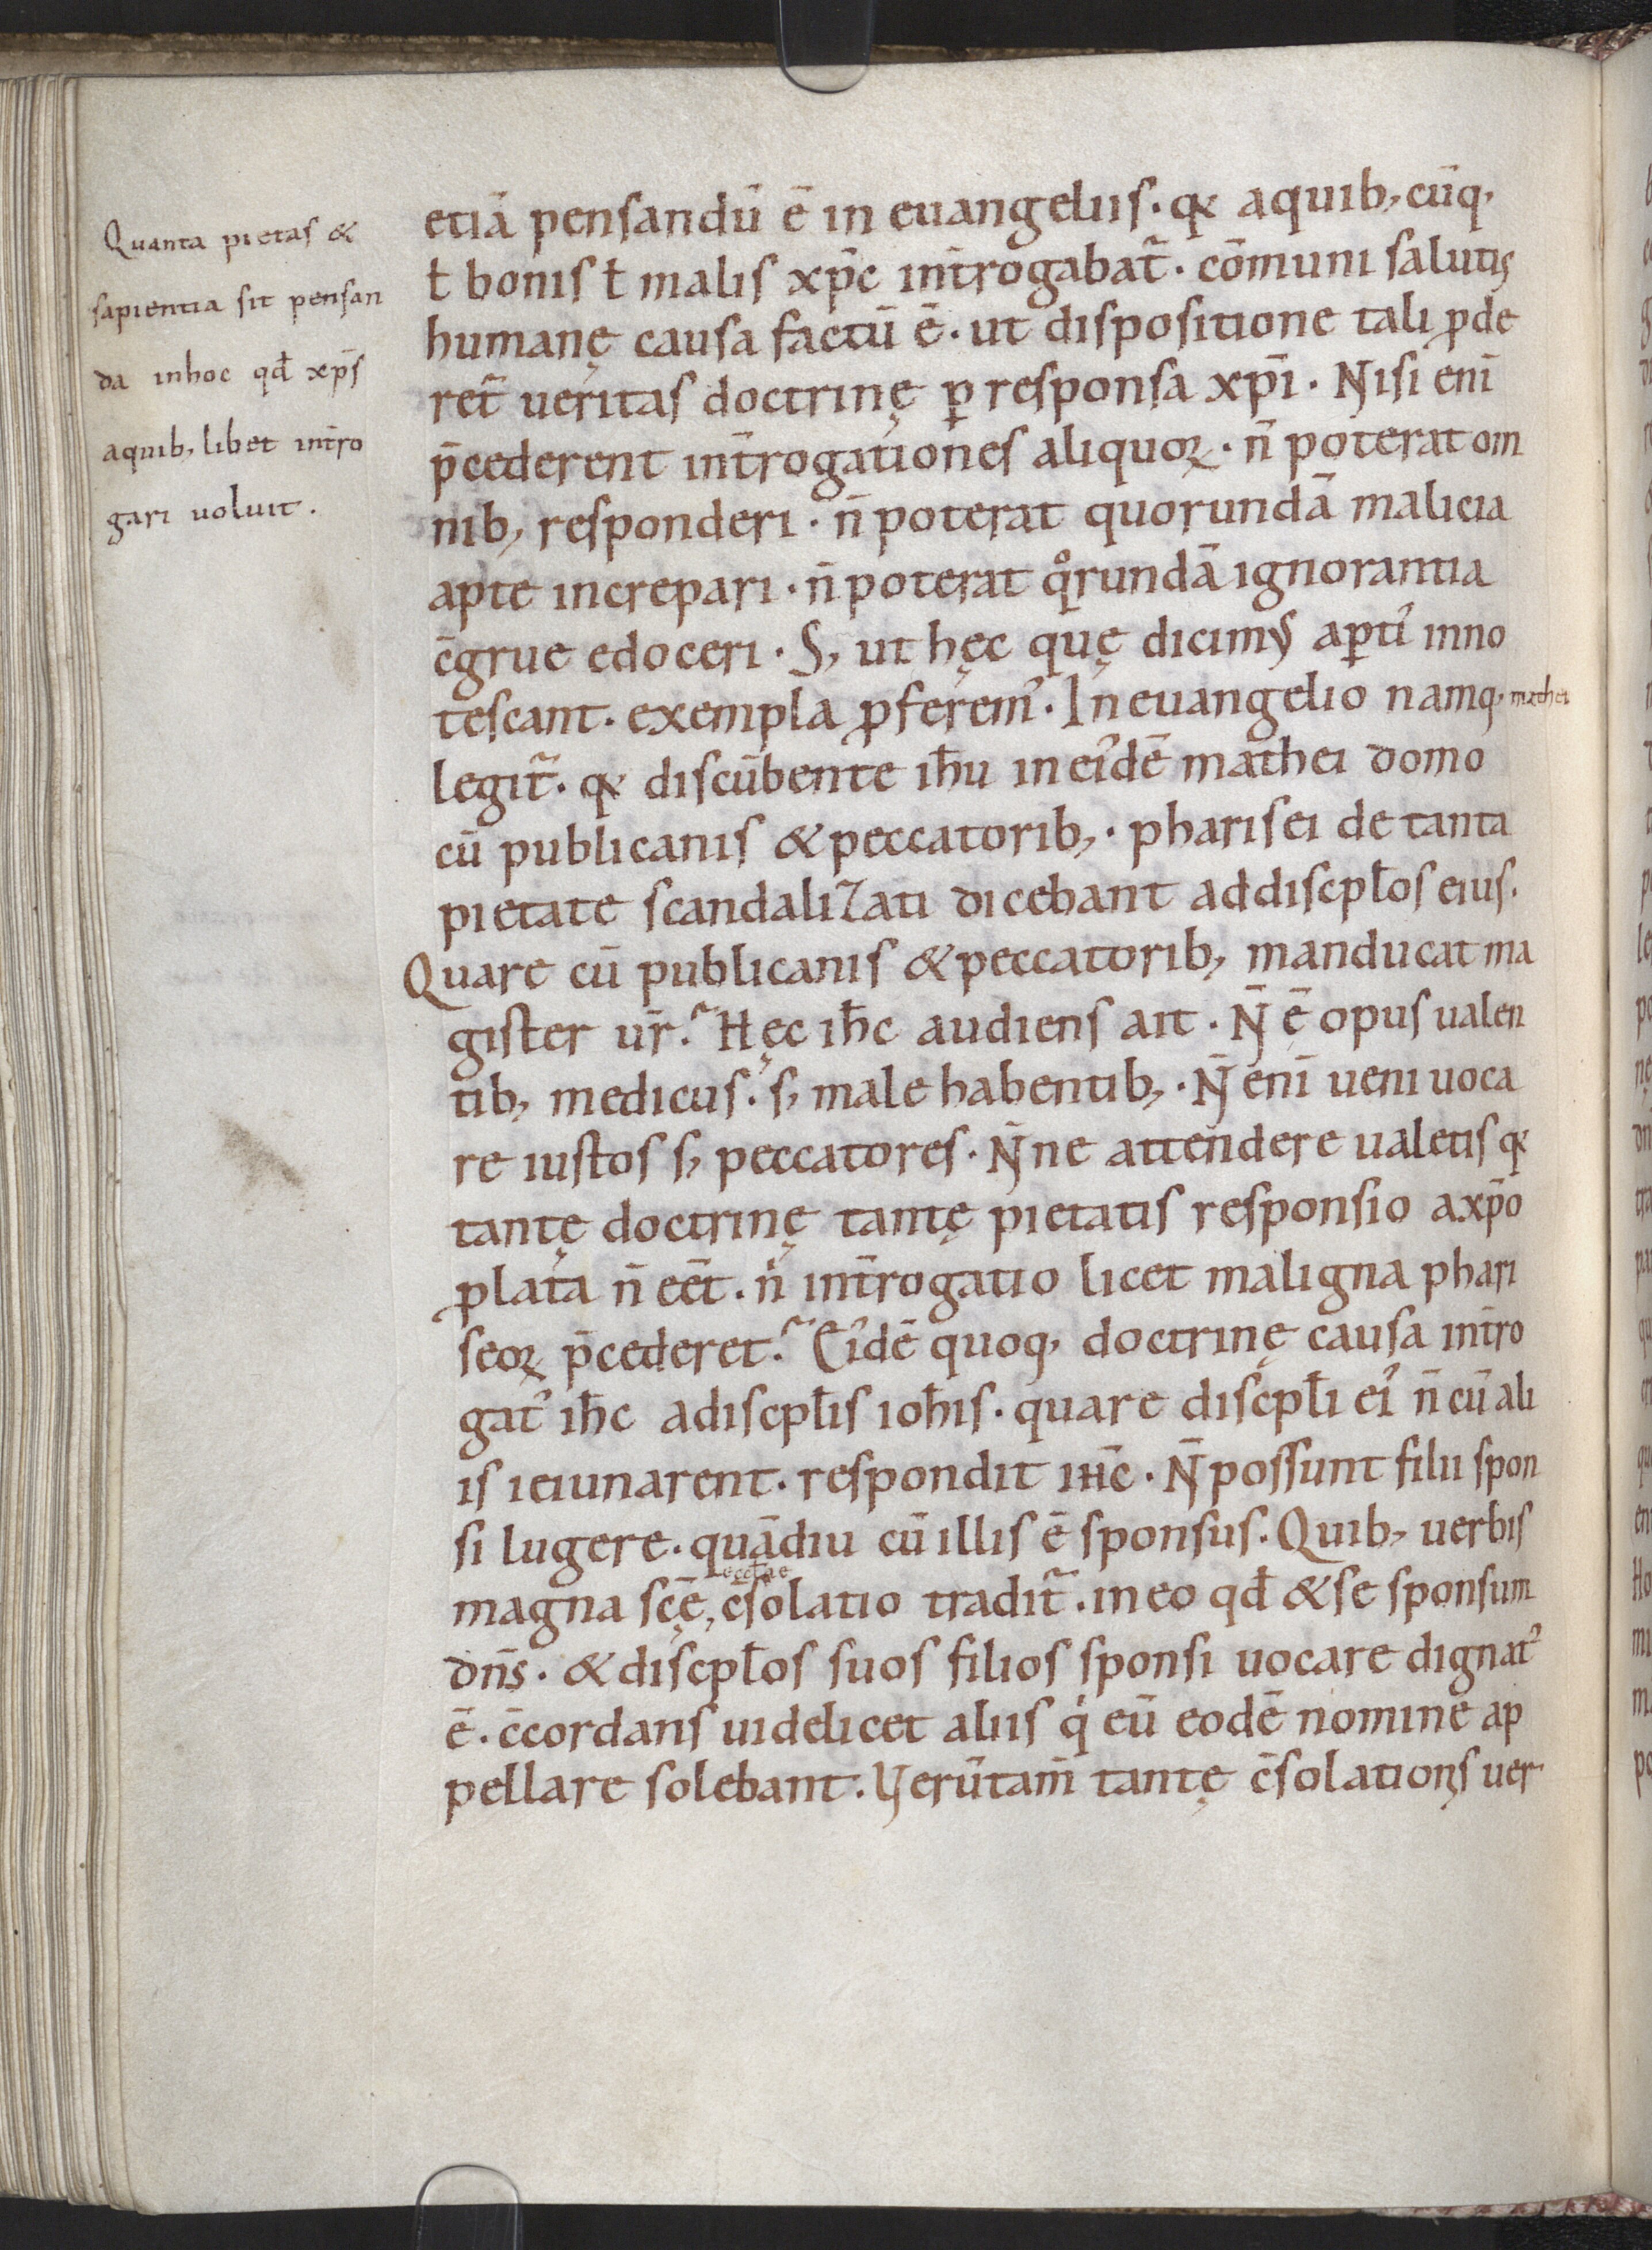 Quanta pietas &
sapientia sit pensan
da inhoc qđ xp̄s
aquib, libet int̄ro
gari uoluit.
etiā pensandū ē in euangeliis · qꝫ aquib, cūq,
ƚ bonis ƚ malis xp̄c int̄rogabat᷑ · cōmuni salutis
humanę causa factū ē · ut dispositione tali ꝓde
ret᷑ ueritas doctrinę ꝑ responsa xp̄i · Nisi eni̅
p̄cederent int̄rogationes aliquoꝝ · n̄ poterat om
nib, responderi · n̄ poterat quorundā malicia
apte increpari · n̄ poterat qͦrundā ignorantia
c̄grue edoceri · S, ut hęc quę dicimꝰ aꝑtiꝰ inno
tescant · exempla ꝓferemꝰ · In euangelio namq, mathei
legit᷑ · qꝫ discūbente ih̄u in eiꝰdē mathei domo
cū publicanis & peccatorib, · pharisei de tanta
pietate scandalizati dicebant addiscpƚos eius.
Quare cū publicanis & peccatorib, manducat ma
gister ur̄? Hęc ih̄c audiens ait · N̄ ē opus ualen
tib, medicus · s, male habentib, · N̄ eni̅ ueni uoca
re iustos s, peccatores · N̄ne attendere ualetis qꝫ
tantę doctrinę tantę pietatis responsio axp̄o
ꝓlata n̄ eēt · nͥ int̄rogatio licet maligna phari
seoꝝ p̄cederet? Eiꝰdē quoq, doctrinę causa int̄ro
gatꝰ ih̄c adiscpƚis ioh̄is · quare discpƚi eiꝰ n̄ cū ali
is ieiunarent · respondit ih̄c · N̄ possunt filii spon
si lugere · quādiu cū illis ē sponsus. Quib, uerbis
magna scę̄, eccƚae c̄solatio tradit᷑ · in eo qđ & se sponsum
dn̄s · & discpƚos suos filios sponsi uocare dignatꝰ
ē · c̄cordans uidelicet aliis qͥ eū eodē nomine ap
pellare solebant. Uerūtam̄ tantę c̄solationis uer